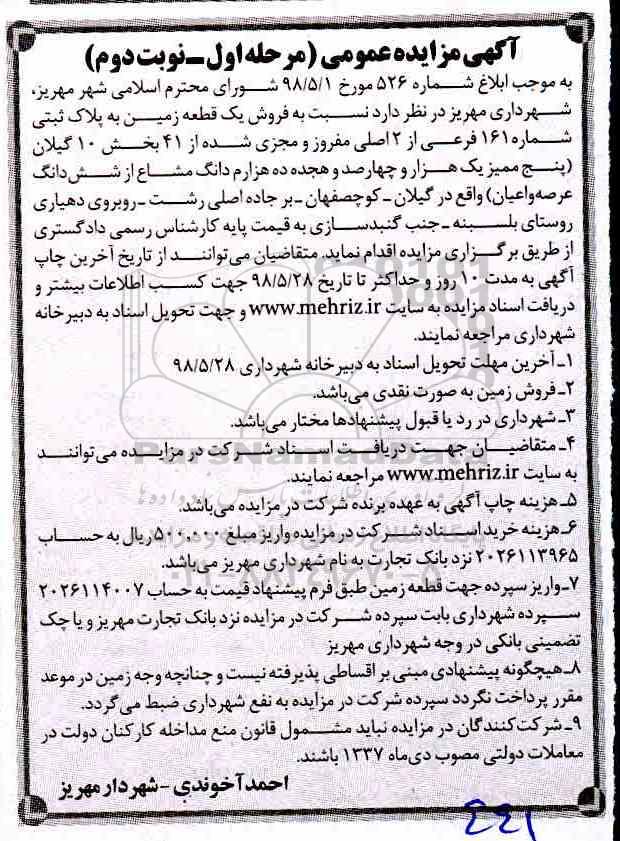 آگهی مزایده عمومی (مرحله اول ـ نوبت دوم)
به موجب ابلاغ شماره ۵۲۶ مورخ ۹۸/۵/۱ شورای محترم اسلامی شهر مهریز،
شهرداری مهریز در نظر دارد نسبت به فروش یک قطعه زمین به پلاک ثبتی
شماره ۱۶۱ فرعی از ۲ اصلی مفروز و مجزی شده از ۴۱ بخش ۱۰ گیلان
(پنج ممیز یک هزار و چهارصد و هجده ده هزارم دانگ مشاع از شش دانگ
عرصه و اعیان) واقع در گیلان ـ کوچصفهان ـ بر جاده اصلی رشت ـ روبروی دهیاری
روستای بلسبنه ـ جنب گنبدسازی به قیمت پایه کارشناس رسمی دادگستری
از طریق برگزاری مزایده اقدام نماید. متقاضیان می‌توانند از تاریخ آخرین چاپ
آگهی به مدت ۱۰ روز و حداکثر تا تاریخ ۹۸/۵/۲۸ جهت کسب اطلاعات بیشتر و
دریافت اسناد مزایده به سایت www.mehriz.ir و جهت تحویل اسناد به دبیرخانه
شهرداری مراجعه نمایند.
۱ـ آخرین مهلت تحویل اسناد به دبیرخانه شهرداری ۹۸/۵/۲۸
۲ـ فروش زمین به صورت نقدی می‌باشد.
۳ـ شهرداری در رد یا قبول پیشنهادها مختار می‌باشد.
۴ـ متقاضیان جهت دریافت اسناد شرکت در مزایده می‌توانند
به سایت www.mehriz.ir مراجعه نمایند.
۵ـ هزینه چاپ آگهی به عهده برنده شرکت در مزایده می‌باشد.
۶ـ هزینه خرید اسناد شرکت در مزایده واریز مبلغ ۵۰۰.۰۰۰ ریال به حساب
۲۰۲۶۱۱۳۹۶۵ نزد بانک تجارت به نام شهرداری مهریز می‌باشد.
۷ـ واریز سپرده جهت قطعه زمین طبق فرم پیشنهاد قیمت به حساب ۲۰۲۶۱۱۴۰۰۷
سپرده شهرداری بابت سپرده شرکت در مزایده نزد بانک تجارت مهریز و یا چک
تضمینی بانکی در وجه شهرداری مهریز
۸ـ هیچگونه پیشنهادی مبنی بر اقساطی پذیرفته نیست و چنانچه وجه زمین در موعد
مقرر پرداخت نگردد سپرده شرکت در مزایده به نفع شهرداری ضبط می‌گردد.
۹ـ شرکت‌کنندگان در مزایده نباید مشمول قانون منع مداخله کارکنان دولت در
معاملات دولتی مصوب دی‌ماه ۱۳۳۷ باشند.
احمد آخوندی - شهردار مهریز